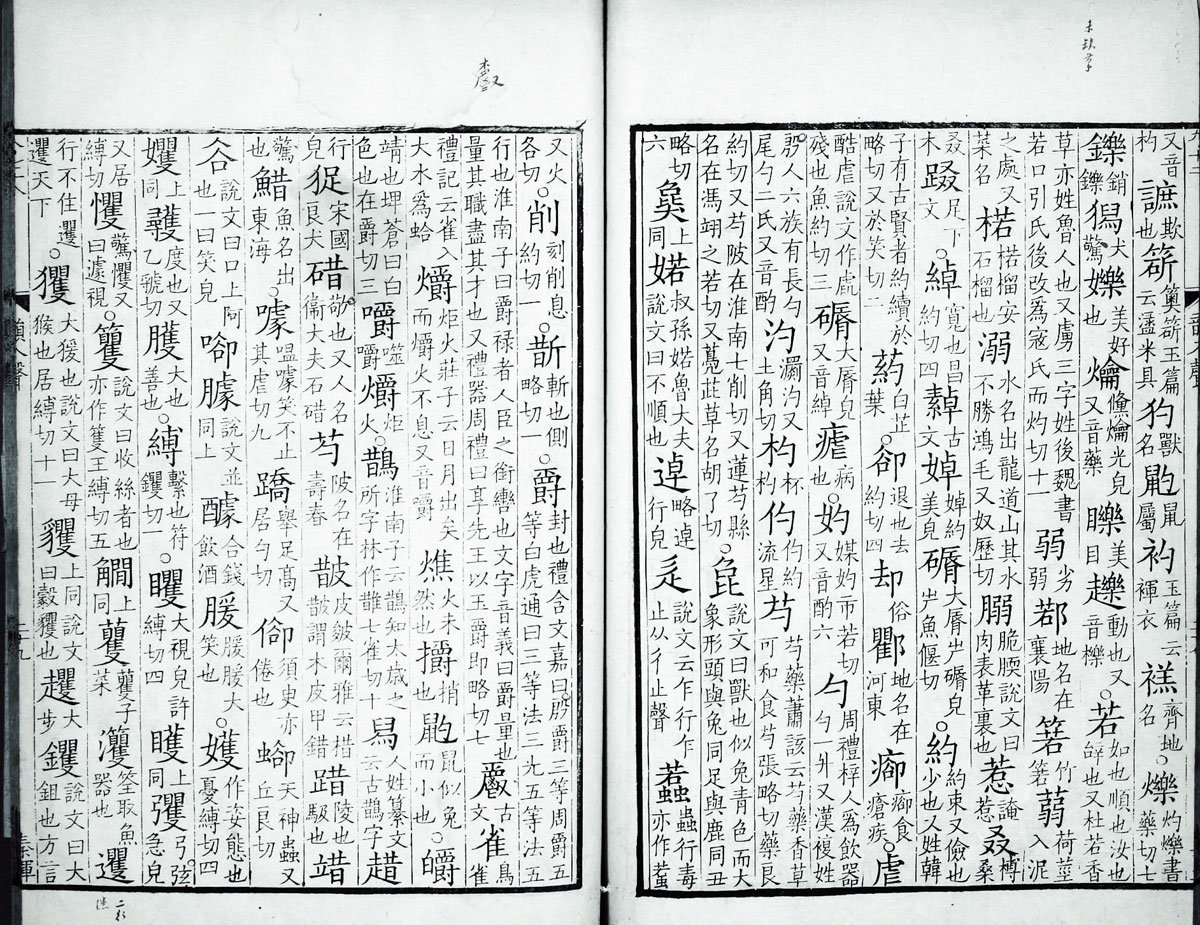 又音杓謶欺也○䉛云盝米具犳獸䶂鼠屬玉篇云禪衣齊地名○爍灼爍書藥切七
鑠銷鑠獡犬驚嬫美好也爚儵爚光皃又音藥美目動也又音櫟○若如也順也汝也辝也又杜若香
草亦姓魯人也又虜三字姓後魏書若口引氏後改爲寇氏而灼切十一弱劣弱鄀地名在襄陽箬竹箬蒻荷莖入泥
之處又菜名楉楉榴安石榴也溺水名出龍道山其水不勝鴻毛又奴歷切脆腝說文曰肉表革裏也惹惹叒榑桑
叒木足下文○綽寬也昌約切四繛古文婥婥約美皃大脣屵皃屵魚偃切○約約束又儉也少也又姓韓
子有古賢者約續於略切又於笑切二葯白芷葉○卻退也去約切四却俗地名在河東瘡疾○虐
酷虐說文作虐殘也魚約切三大脣皃又音綽瘧病也○妁媒妁市若切又音酌六勺周禮梓人爲飲器勺一升又漢複姓
殷人六族有長勺尾勺二氏又音酌汋瀱汋又土角切杓杯杓仢仢約流星芍芍藥蕭該云芍藥香草可和食芍張略切藥良
約切又芍陂在淮南七削切又蓮芍縣名在馮翊之若切又茈草名胡了切○㲋說文曰獸也似兔青色而大象形頭與兔同足與鹿同丑
略切六㚟上同婼叔孫婼魯大夫說文曰不順也逴略逴行皃辵說文云乍行乍止从彳止聲蟲行毒亦作蠚
又火各切○削刻削息約切一○斮斬也側略切一○爵封也禮含文嘉曰殷爵三等周爵五等白虎通曰三等法三光五等法五
行也淮南子曰爵祿者人臣之銜轡也文字音義曰爵量也量其職盡其才也又禮器周禮曰享先王以玉爵即略切七古文雀鳥雀
禮記云雀入大水爲蛤爝炬火莊子云日月出矣而爝火不息又音嚼燋火未然也捎也鼠似兔而小也○皭
靖也埤蒼曰白色也在爵切三嚼噬嚼爝炬火○鵲淮南子云鵲知太歲之所字林作䧿七雀切十舃人姓纂文云古鵲字趞
行皃宋國良犬碏敬也又人名衞大夫石碏芍陂名在壽春皵皮皴爾雅云棤皵謂木皮甲錯踖陵也
驚也䱜魚名出東海○噱嗢噱笑不止其虐切九蹻舉足高又居勺切須臾亦倦也天神蟲又丘良切
谷說文曰口上阿也一曰笑皃臄說文並同上醵合錢飲酒大笑也○嬳作姿態也憂縛切四
上同韄度也又乙虢切臒大也善也○縛繫也符钁切一○矆大視皃許縛切四上同彏弓弦急皃
又居縛切戄驚戄又曰遽視○籰說文曰收絲者也亦作篗王縛切五上同子菜筌取魚器也
行不住天下○玃大猨也說文曰大母猴也居縛切十一貜上同說文曰㲉貜也大步钁說文曰大鉏也方言